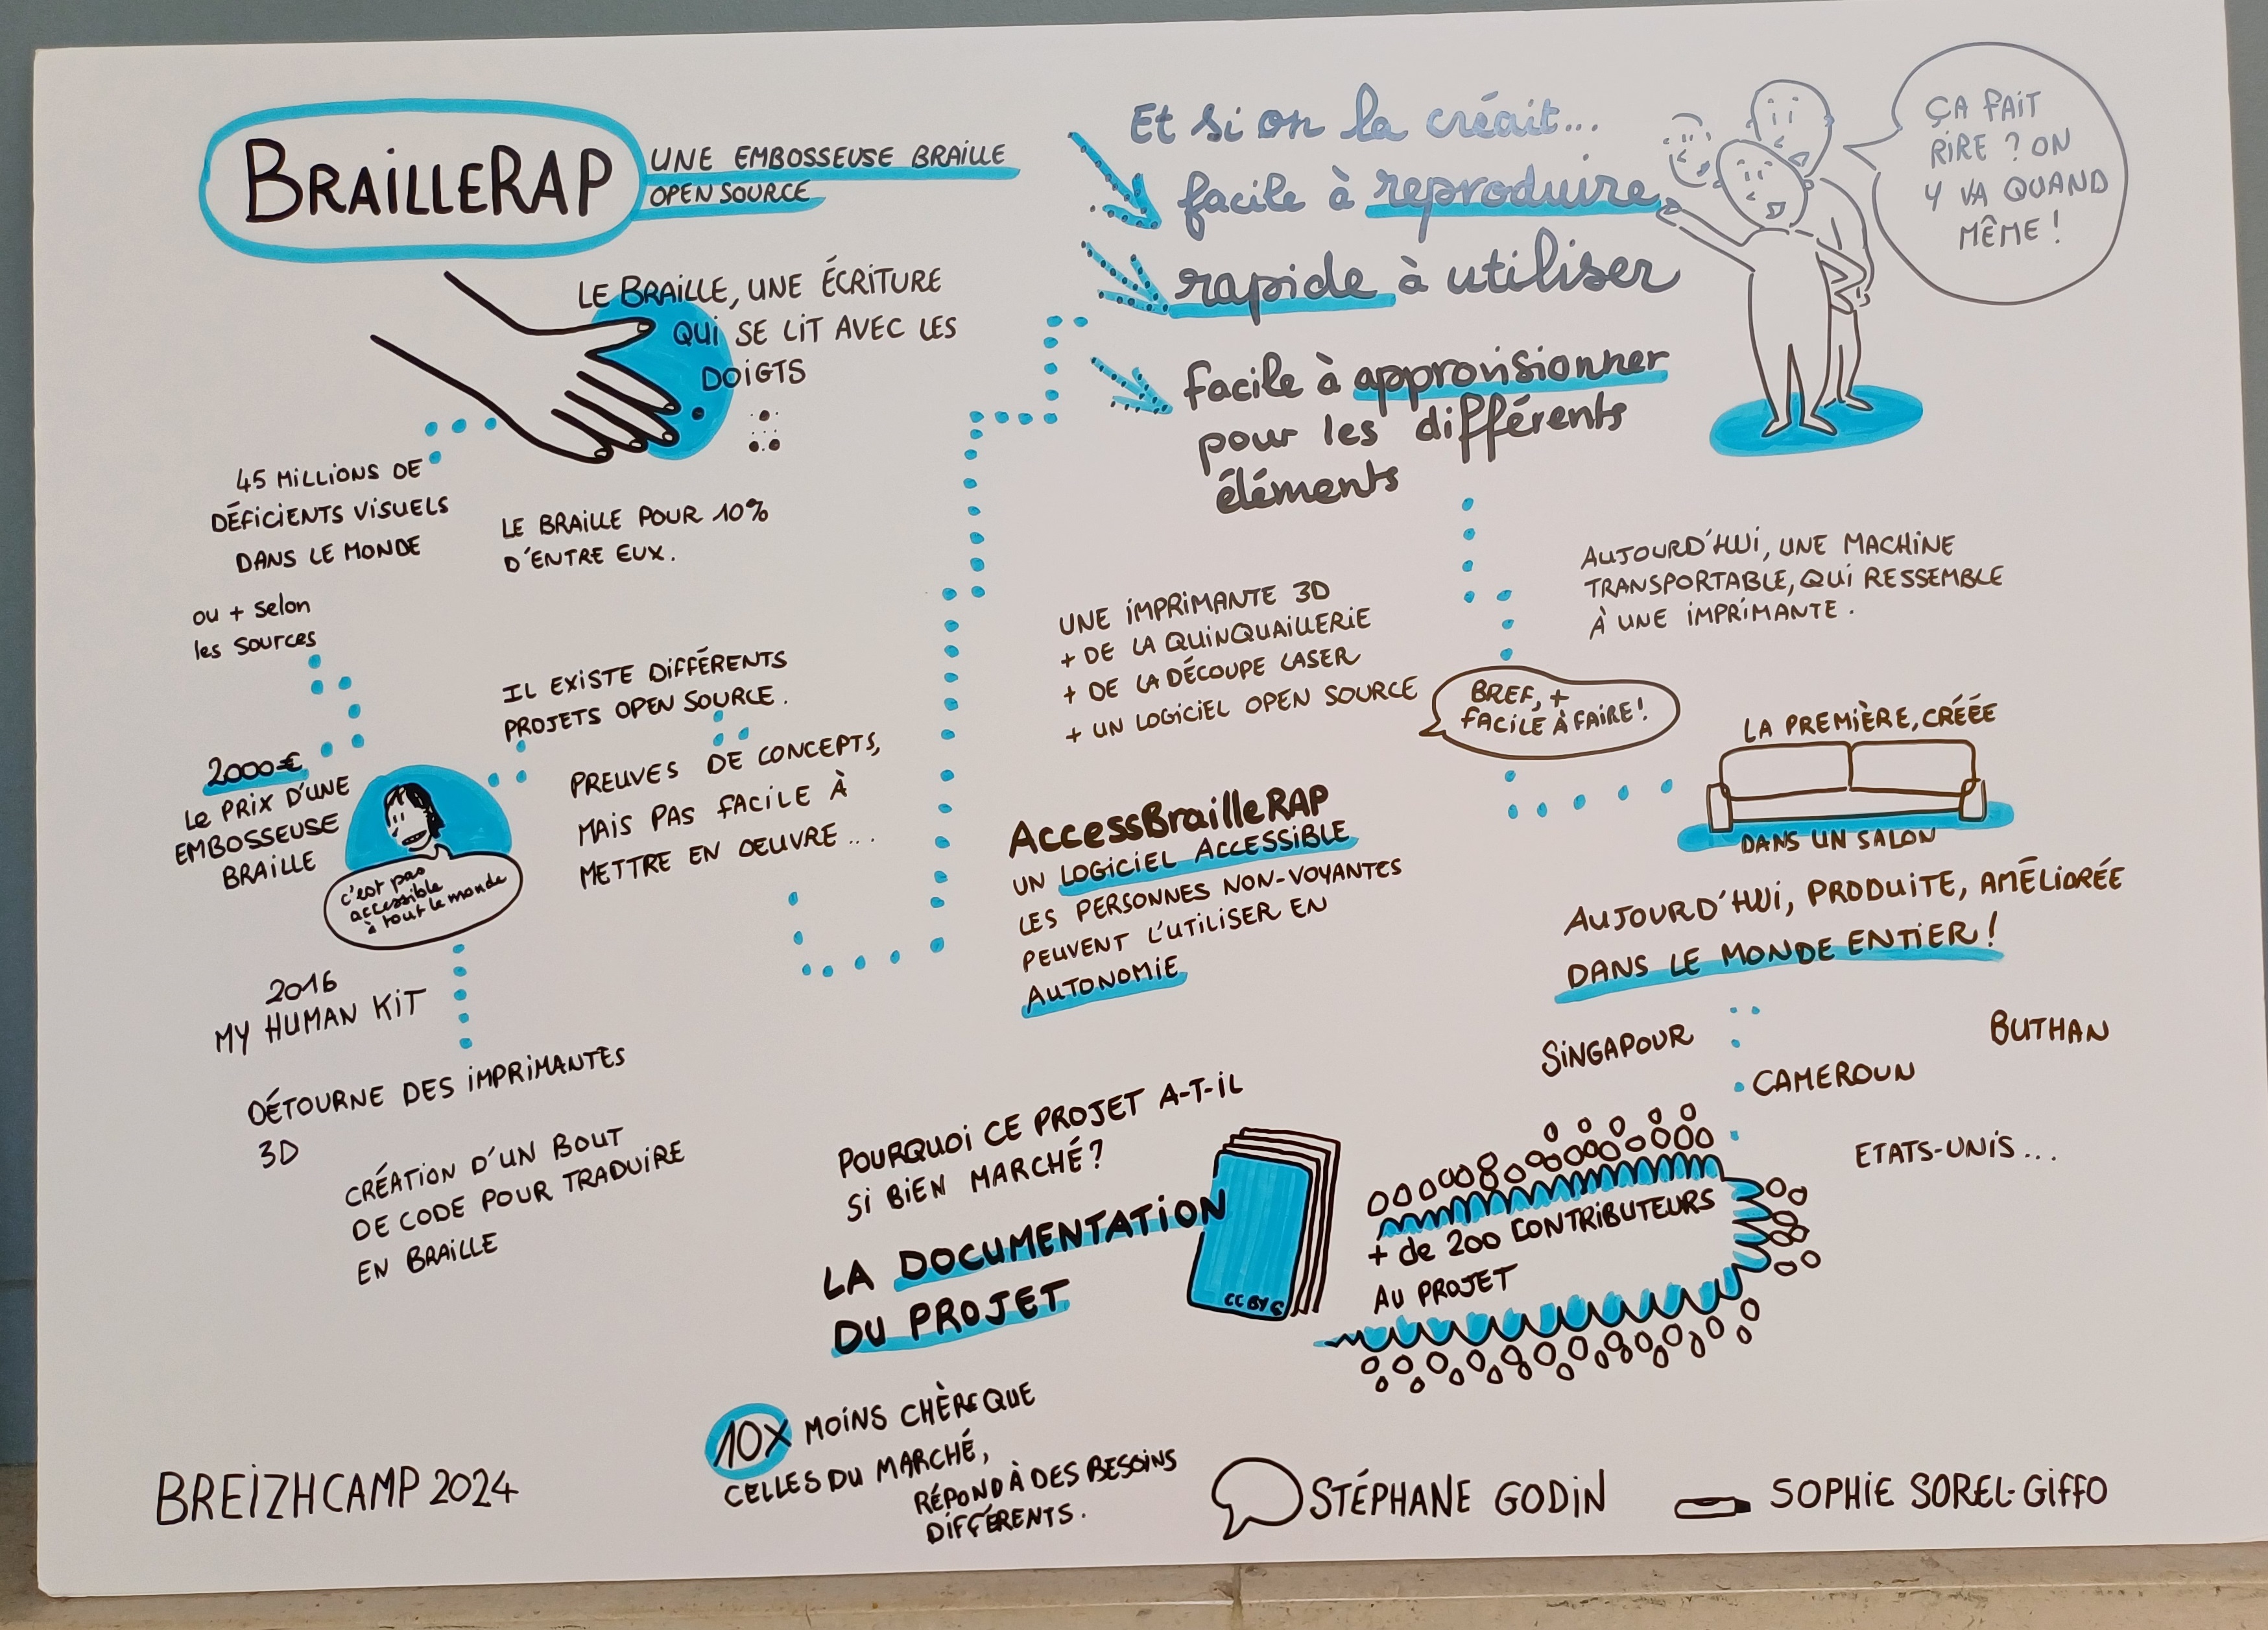 BRAILLERAP
UNE EMBOSSEUSE BRAILLE
OPEN SOURCE
LE BRAILLE, UNE ÉCRITURE
QUI SE LIT AVEC LES
DOIGTS
45 MILLIONS DE
DÉFICIENTS VISUELS
DANS LE MONDE
ou + selon
les sources
LE BRAILLE POUR 10%
D'ENTRE EUX.
2000€
LE PRIX D'UNE
EMBOSSEUSE
BRAILLE
c'est pas
accessible
à tout le monde
IL EXISTE DIFFÉRENTS
PROJETS OPEN SOURCE.
PREUVES DE CONCEPTS,
MAIS PAS FACILE À
METTRE EN OEUVRE...
2016
MY HUMAN KIT
DÉTOURNE DES IMPRIMANTES
3D
CRÉATION D'UN BOUT
DE CODE POUR TRADUIRE
EN BRAILLE
Et si on la créait...
facile à reproduire
rapide à utiliser
facile à approvisionner
pour les différents
éléments
ÇA FAIT
RIRE ? ON
Y VA QUAND
MÊME !
UNE IMPRIMANTE 3D
+ DE LA QUINQUAILLERIE
+ DE LA DÉCOUPE LASER
+ UN LOGICIEL OPEN SOURCE
BREF, +
FACILE À FAIRE !
AUJOURD'HUI, UNE MACHINE
TRANSPORTABLE, QUI RESSEMBLE
À UNE IMPRIMANTE.
LA PREMIÈRE, CRÉÉE
DANS UN SALON
AccessBrailleRAP
UN LOGICIEL ACCESSIBLE
LES PERSONNES NON-VOYANTES
PEUVENT L'UTILISER EN
AUTONOMIE
AUJOURD'HUI, PRODUITE, AMÉLIORÉE
DANS LE MONDE ENTIER !
SINGAPOUR
BUTHAN
CAMEROUN
ETATS-UNIS...
POURQUOI CE PROJET A-T-IL
SI BIEN MARCHÉ ?
LA DOCUMENTATION
DU PROJET
CC BY
+ de 200 CONTRIBUTEURS
AU PROJET
10X MOINS CHÈRE QUE
CELLES DU MARCHÉ,
RÉPOND À DES BESOINS
DIFFÉRENTS.
BREIZHCAMP 2024
STÉPHANE GODIN
SOPHIE SOREL-GIFFO